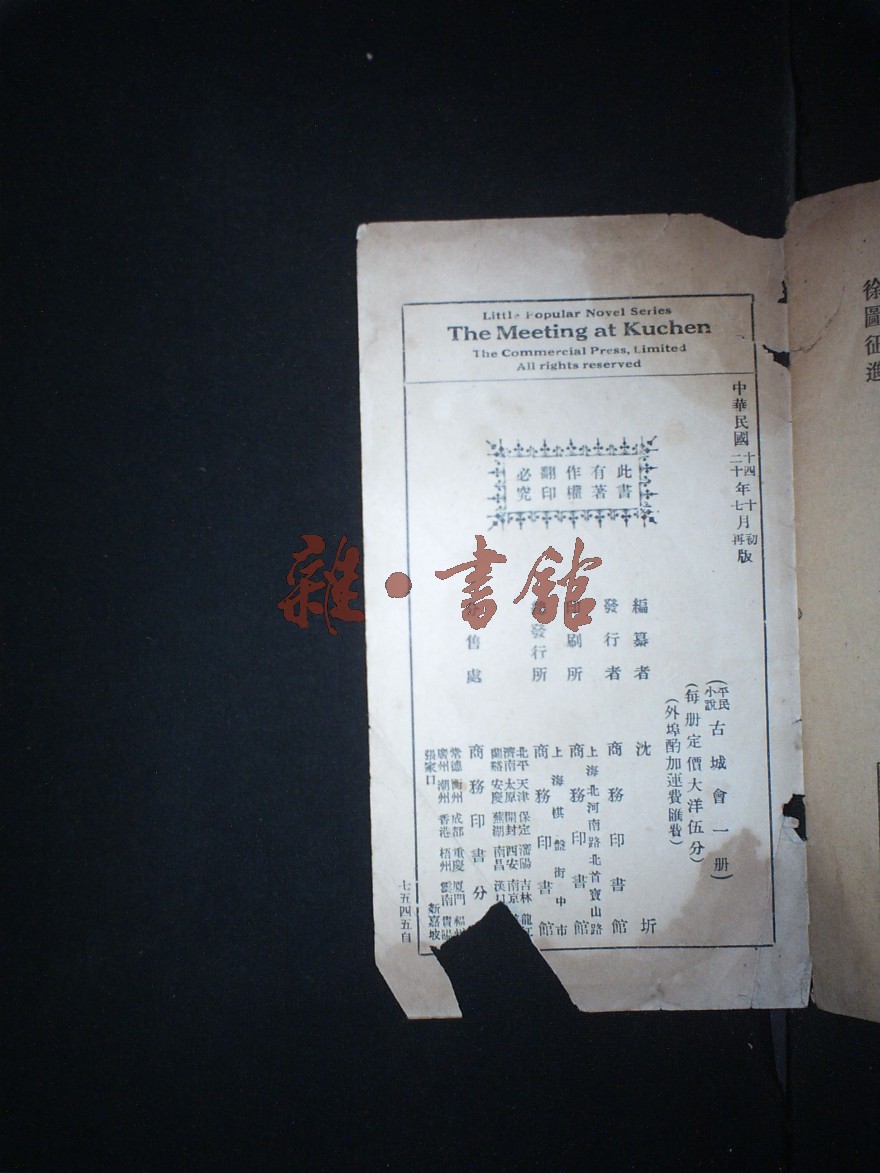 Little Popular Novel Series
The Meeting at Kuchen
The Commercial Press, Limited
All rights reserved
中華民國十四年十月初版
二十年七月再版
此書
有著
作權
翻印
必究
(平民小說)古城會一册)
(每册定價大洋伍分)
(外埠酌加運費匯費)
編纂者 沈圻
發行者 商務印書館
上海北河南路北首寶山路
印刷所 商務印書館
上海棋盤街中市
發行所 商務印書館
售處 商務印書分
北平 天津 保定 瀋陽 吉林 龍江
濟南 太原 開封 西安 南京
蘭谿 安慶 蕪湖 南昌 漢口
常德 衡州 成都 重慶 厦門 福州
廣州 潮州 香港 梧州 雲南 貴陽
張家口 新嘉坡
七五四五自
徐圖征進
雜·書館